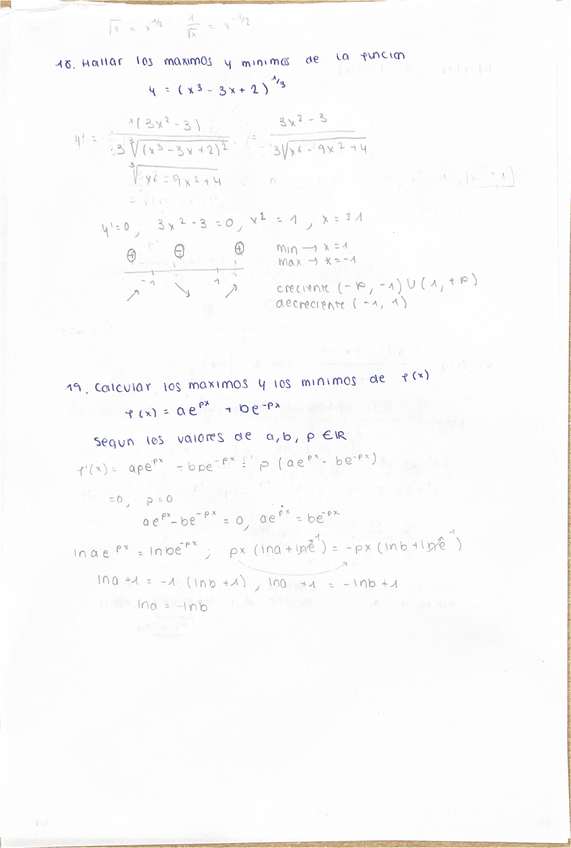 √x = x^1/2   1/√x = x^-1/2
18. Hallar los maximos y minimos de la funcion
y = (x³ - 3x + 2)^1/3
y' = 1(3x² - 3) / 3 ∛(x³ - 3x + 2)² = 3x² - 3 / 3√x6 - 9x² + 4
∛x6 - 9x² + 4
y'=0, 3x² - 3 = 0, x² = 1, x = ±1
⊕ ⊖ ⊕ min → x = 1
-1 1 max → x = -1
↗ ↘ ↗ creciente (-∞, -1) U (1, +∞)
decreciente (-1, 1)
19. Calcular los maximos y los minimos de f(x)
f(x) = ae^px + be^-px
Segun los valores de a, b, p ∈ IR
f'(x) = ape^px - bpe^-px = p (ae^px - be^-px)
=0, p=0
ae^px - be^-px = 0, ae^px = be^-px
ln ae^px = ln be^-px ; px (lna + lne^1) = -px (lnb + lne^1)
lna + 1 = -1 (lnb + 1), lna + 1 = -lnb + 1
lna = -lnb